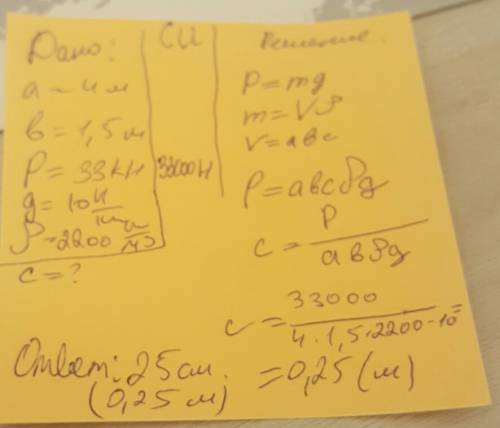 Дано:
a = 4 м
b = 1,5 м
P = 33 кН
g = 10 Н/кг
ρ = 2200 кг/м³
c = ?
СИ
33000 Н
Решение.
P = mg
m = Vρ
V = abc
P = abcρg
c = P / abρg
c = 33000 / 4 · 1,5 · 2200 · 10 =
= 0,25 (м)
Ответ: 25 см.
(0,25 м)